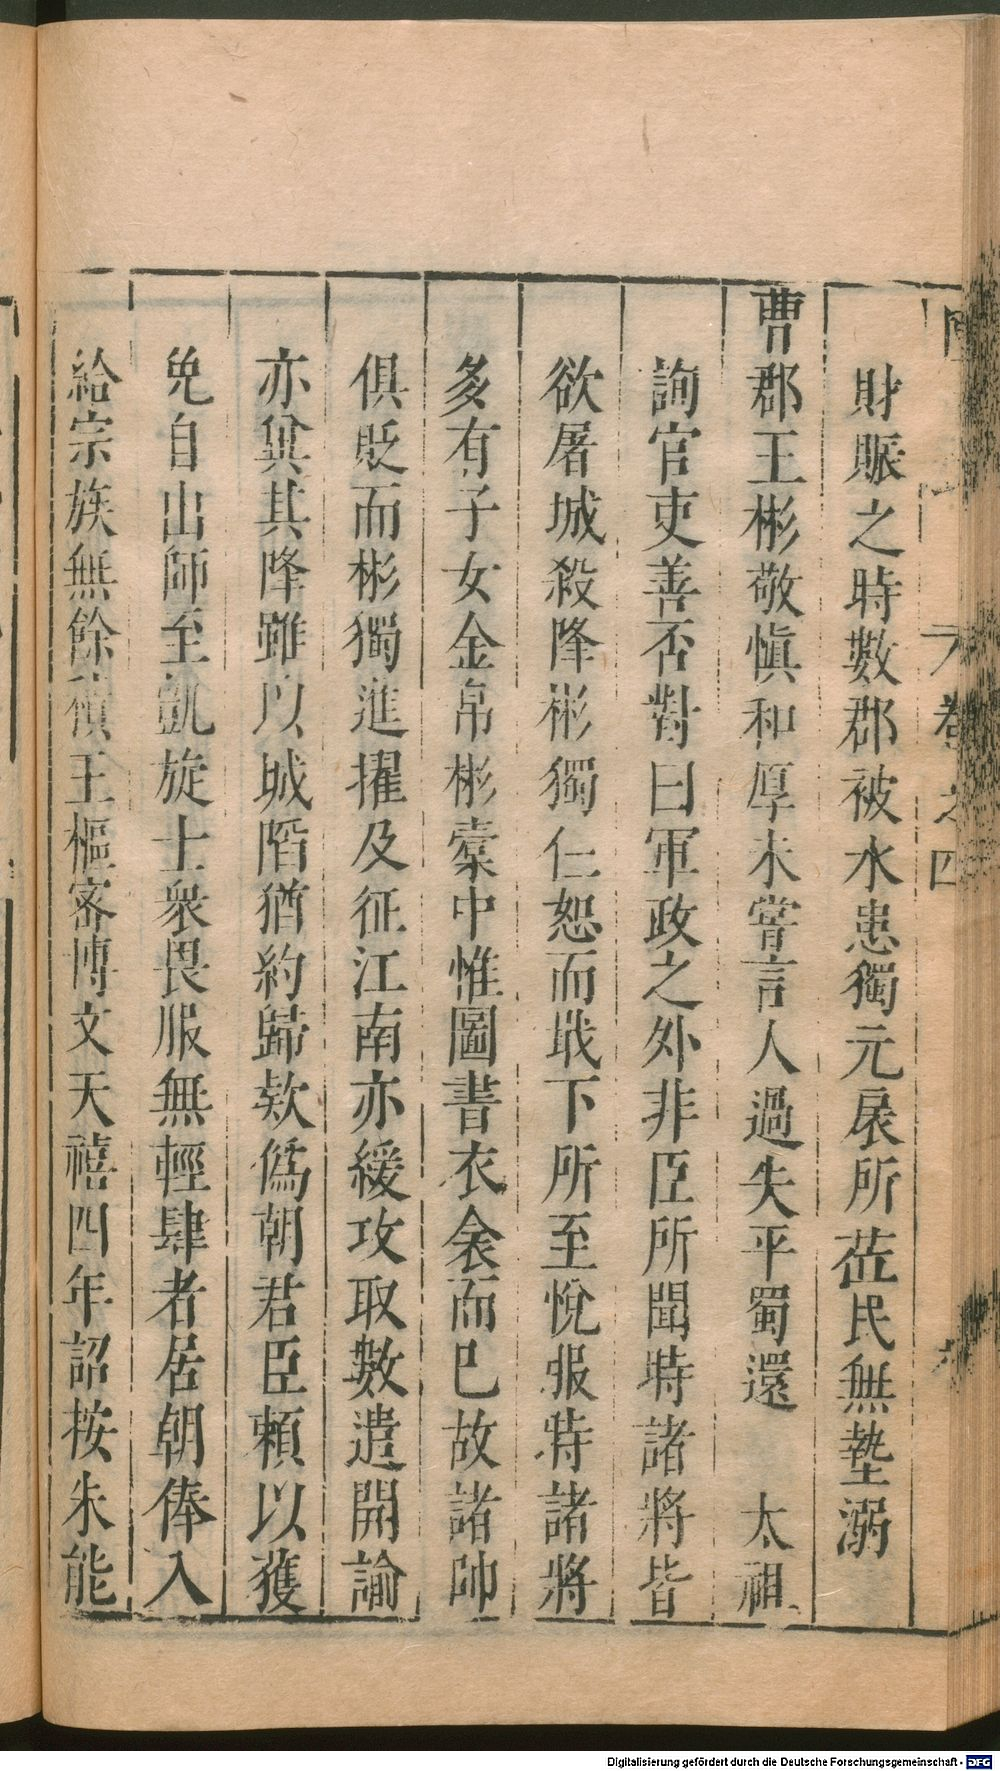 卷之四
財賑之時數郡被水患獨元扆所莅民無墊溺
曹郡王彬敬愼和厚未嘗言人過失平蜀還　太祖
詢官吏善否對曰軍政之外非臣所聞時諸將皆
欲屠城殺降彬獨仁恕而戢下所至悅服時諸將
多有子女金帛彬橐中惟圖書衣衾而已故諸帥
俱貶而彬獨進擢及征江南亦緩攻取數遣開諭
亦兾其降雖以城陷猶約歸欵僞朝君臣頼以獲
免自出師至凱旋士衆畏服無輕肆者居朝俸入
給宗族無餘積王樞密博文天禧四年詔按朱能
Digitalisierung gefördert durch die Deutsche Forschungsgemeinschaft - DFG